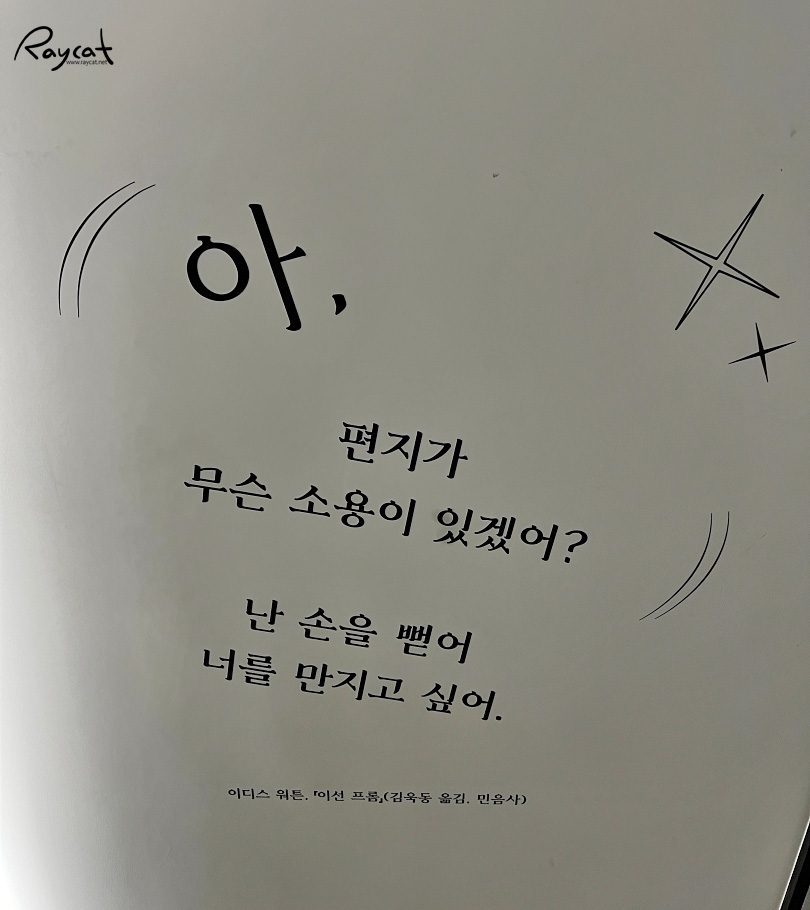 Raycat
www.raycat.net
아,
편지가
무슨 소용이 있겠어?
난 손을 뻗어
너를 만지고 싶어.
이디스 워튼, 『이선 프롬』(김욱동 옮김, 민음사)